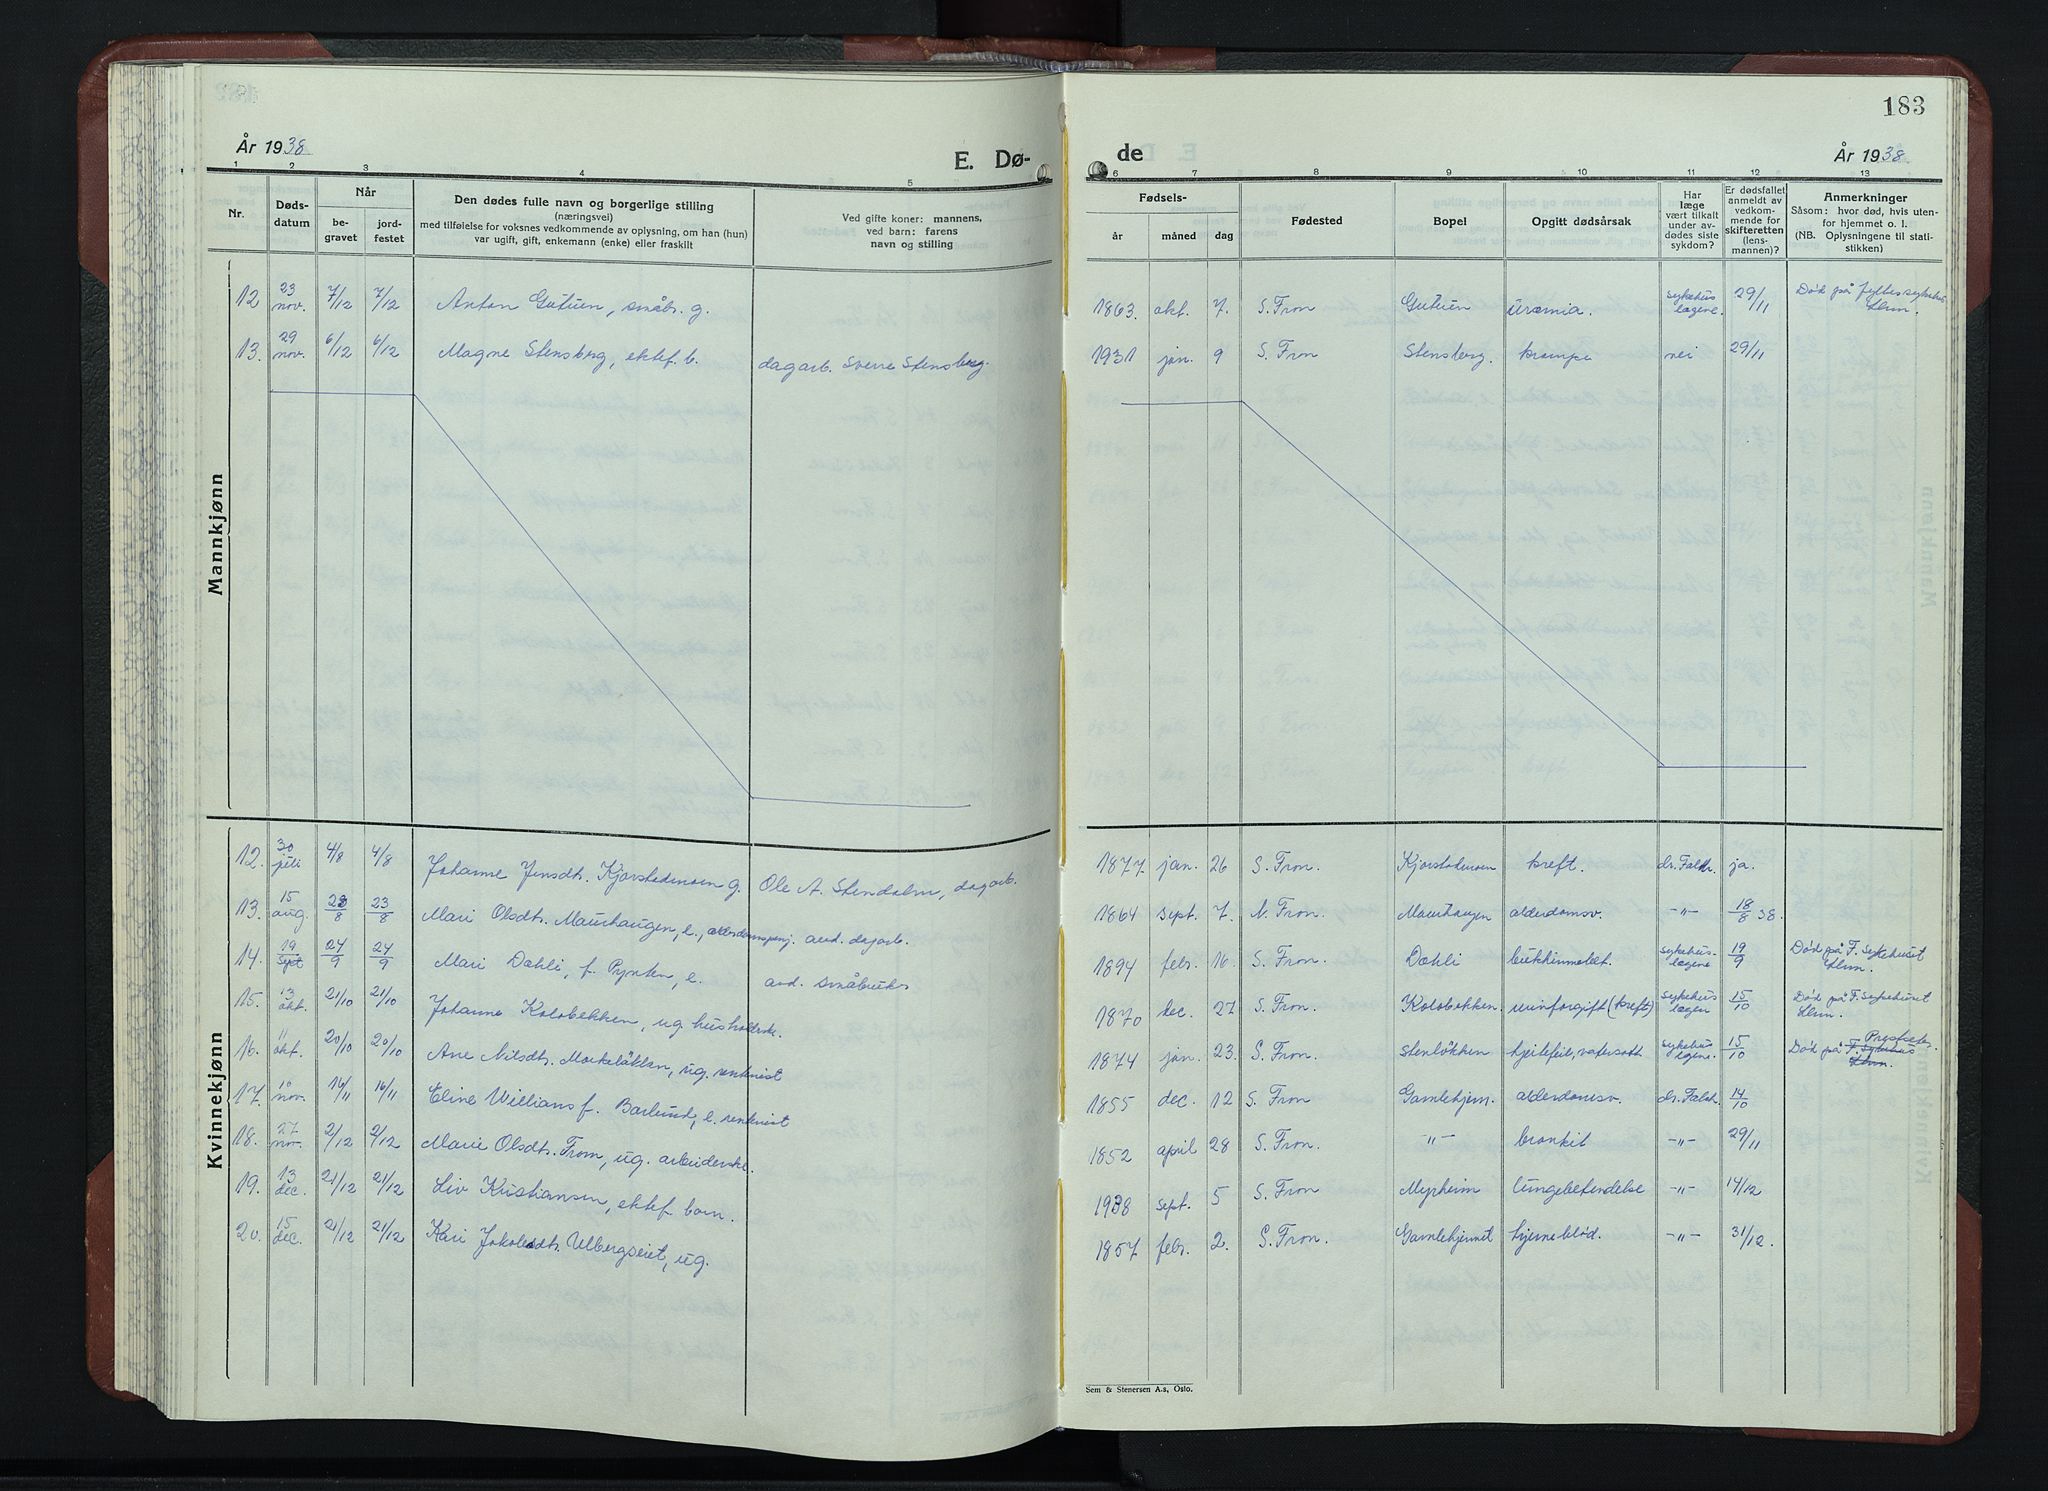 183
År 1938
E. Dø-
de
År 1938
1 2 3 4 5 6 7 8 9 10 11 12 13
Nr.
Døds-
datum
Når
be-
gravet
jord-
festet
Den dødes fulle navn og borgerlige stilling
(næringsvei)
med tilføielse for voksnes vedkommende av oplysning, om han (hun)
var ugift, gift, enkemann (enke) eller fraskilt
Ved gifte koner: mannens,
ved barn: farens
navn og stilling
Fødsels-
år måned dag
Fødested
Bopel
Opgitt dødsårsak
Har
læge
vært tilkalt
under av-
dødes siste
sykdom?
Er dødsfallet
anmeldt av
vedkom-
mende for
skifteretten
(lens-
mannen)?
Anmerkninger
Såsom: hvor død, hvis uten-
for hjemmet o. l.
(NB. Oplysningene til stati-
stikken)
Mannkjønn
12 23 nov. 7/12 7/12 Anton Gutuen, småbr. g. 1863. okt. 7. S. Fron Gutuen uræmia. sykehus lægene. 29/11 Død på fylkessykehus Lhm.
13. 29 nov. 6/12 6/12 Magne Stensberg, ektef. b. dagarb. Sverre Stensberg. 1931 jan. 9 S. Fron Stensberg. krampe nei 29/11
Kvinnekjønn
12. 30 juli 4/8 4/8 Johanne Jensdt. Kjorstadmoen g. Ole A. Stendalm, dagarb. 1877. jan. 26 S. Fron. Kjorstadmoen kreft. dr. Falch. ja.
13. 15 aug. 23/8 23/8 Mari Olsdt. Maurhaugen, e., alderdomspensj. avd. dagarb. 1864 sept. 7. N. Fron. Maurhaugen alderdomsv. -"- 18/8 38.
14. 19 sept 24/9 24/9 Mari Dæhli, f. Pynten, e. avd. småbruks 1894 febr. 16. S. Fron. Dæhli bukhinnebet. sykehus-lægene 19/9 Død på F. sykehuset Lhm.
15. 13 okt. 21/10 21/10 Johanne Kolobekken, ug. husholderske. 1870 dec. 27 S. Fron. Kolobekken. urinforgift (kreft) sykehus lægen 15/10 Død på F. sykehuset Lhm.
16. 11 okt. 20/10 20/10 Ane Nilsdt. Morkeløkken, ug. rentenist 1874 jan. 23. S. Fron. Stenløkken hjertefeil, vatersott sykehus legene. 15/10 Død på F. Sykehus Lhm. Prestseter.
17. 10 nov. 16/11 16/11 Eline Willians f. Barlund, e. rentenist 1855 dec. 12 S. Fron Gamlehjem. alderdomsv. dr. Falch. 14/10
18. 27 nov. 2/12 2/12 Marie Olsdt. From, ug. arbeiderske. 1852 april 28 S. Fron. -"- bronkit -"- 29/11
19. 13 dec. 21/12 21/12 Liv Kristiansen, ektef. barn. 1938 sept. 5 S. Fron Myrheim lungebetendelse -"- 14/12
20. 15 dec. 21/12 21/12 Kari Jakobsdt. Ulbergseiet, ug. 1857 febr. 2. S. Fron. Gamlehjemet hjerneblød. -"- 31/12.
Sem & Stenersen A.s, Oslo.